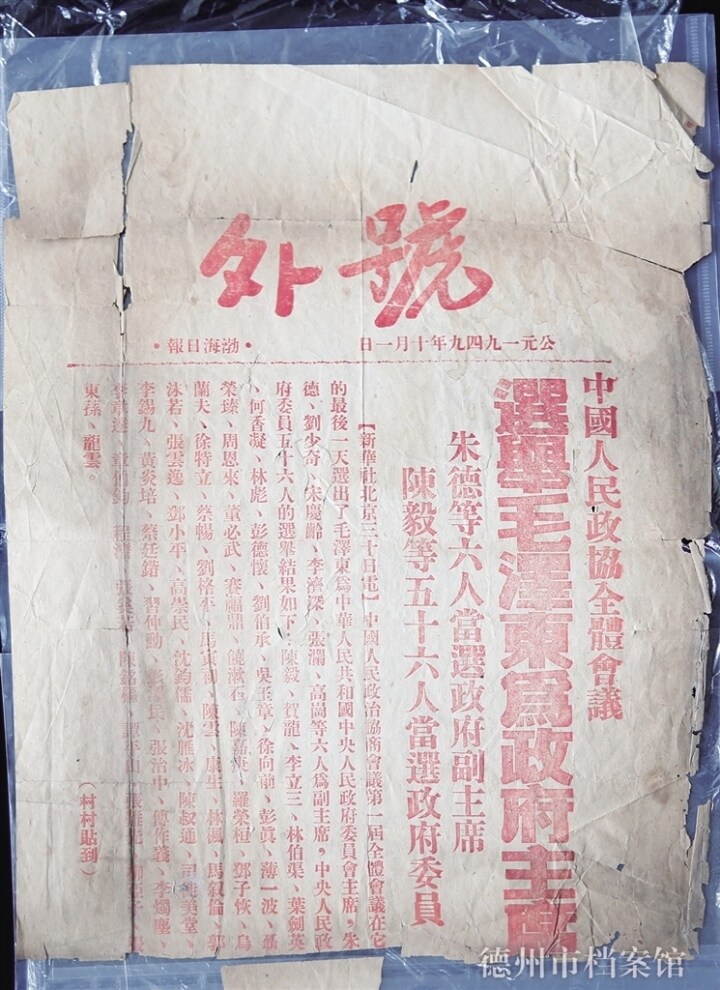 號外
公元一九四九年十月一日
·渤海日報·
中國人民政協全體會議
選舉毛澤東爲政府主席
朱德等六人當選政府副主席
陳毅等五十六人當選政府委員
【新華社北京三十日電】中國人民政治協商會議第一屆全體會議在它
的最後一天選出了毛澤東爲中華人民共和國中央人民政府委員會主席，朱
德、劉少奇、宋慶齡、李濟深、張瀾、高崗等六人爲副主席，中央人民政
府委員五十六人的選舉結果如下：陳毅、賀龍、李立三、林伯渠、葉劍英
、何香凝、林彪、彭德懷、劉伯承、吳玉章、徐向前、彭眞、薄一波、聶
榮臻、周恩來、董必武、賽福鼎、饒漱石、陳嘉庚、羅榮桓、鄧子恢、烏
蘭夫、徐特立、蔡暢、劉格平、馬寅初、陳雲、康生、林楓、馬叙倫、郭
沫若、張雲逸、鄧小平、高崇民、沈鈞儒、沈雁冰、陳叔通、司徒美堂、
李錫九、黃炎培、蔡廷鍇、習仲勳、彭澤民、張治中、傅作義、李燭塵、
李章達、章伯鈞、程潛、張奚若、陳銘樞、譚平山、張難先、柳亞子、張
東蓀、龍雲。
（村村貼到）
德州市档案馆